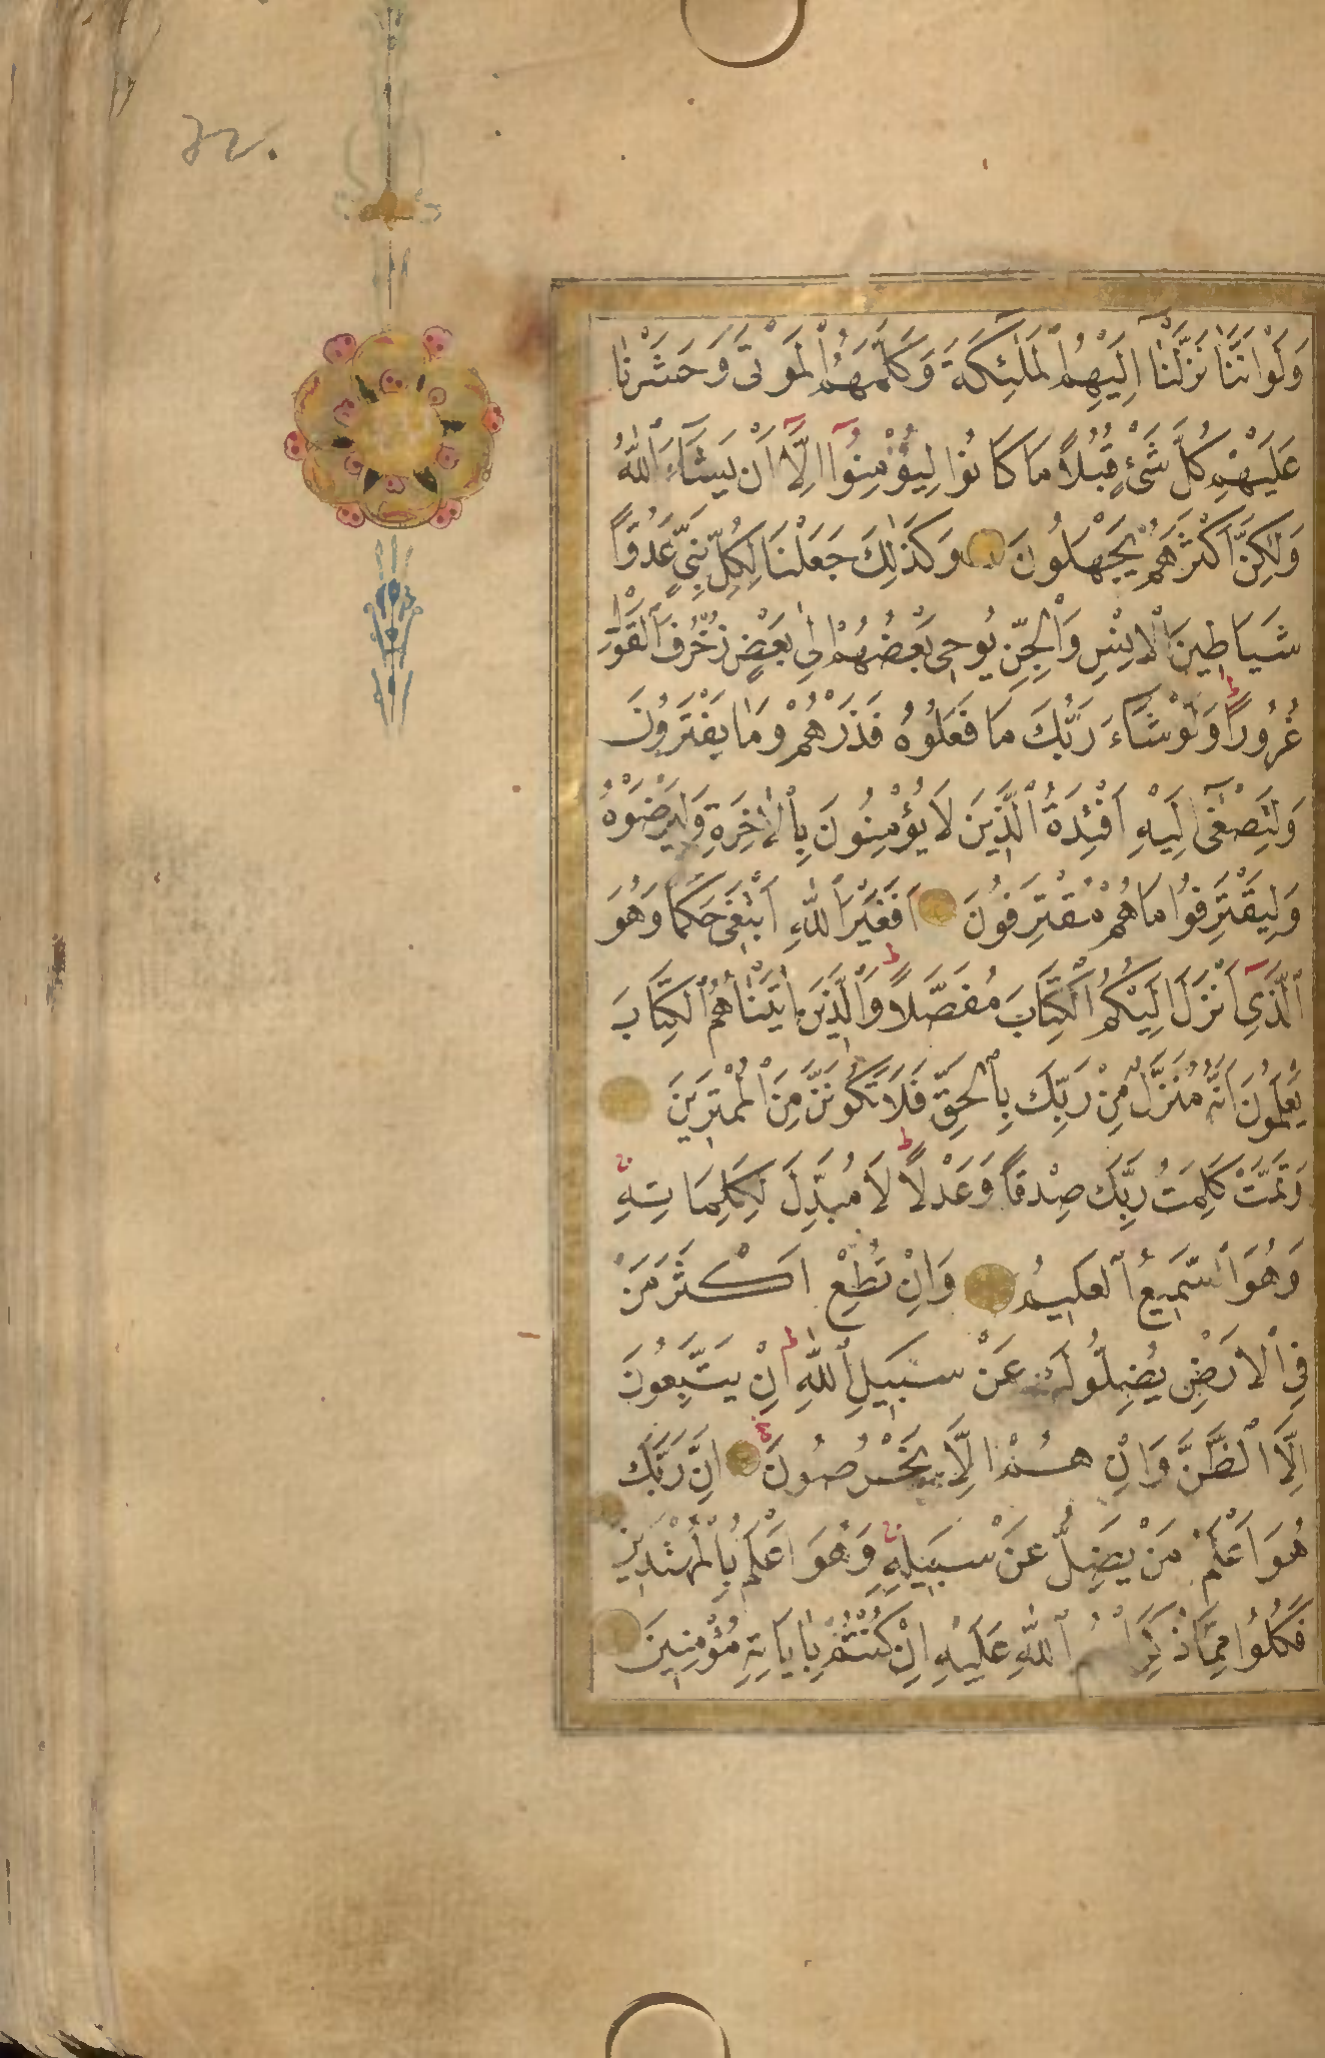 وَلَوْ اَنَّنَا نَزَّلْنَٓا اِلَيْهِمُ الْمَلٰٓئِكَةَ وَكَلَّمَهُمُ الْمَوْتٰى وَحَشَرْنَا
عَلَيْهِمْ كُلَّ شَيْءٍ قُبُلًا مَا كَانُوا لِيُؤْمِنُٓوا اِلَّٓا اَنْ يَشَٓاءَ اللّٰهُ
وَلٰكِنَّ اَكْثَرَهُمْ يَجْهَلُونَ وَكَذٰلِكَ جَعَلْنَا لِكُلِّ نَبِيٍّ عَدُوًّا
شَيَاطِينَ الْاِنْسِ وَالْجِنِّ يُوحِي بَعْضُهُمْ اِلٰى بَعْضٍ زُخْرُفَ الْقَوْلِ
غُرُورًا ط وَلَوْ شَٓاءَ رَبُّكَ مَا فَعَلُوهُ فَذَرْهُمْ وَمَا يَفْتَرُونَ
وَلِتَصْغٰٓى اِلَيْهِ اَفْـِٔدَةُ الَّذِينَ لَا يُؤْمِنُونَ بِالْاٰخِرَةِ وَلِيَرْضَوْهُ
وَلِيَقْتَرِفُوا مَا هُمْ مُقْتَرِفُونَ اَفَغَيْرَ اللّٰهِ اَبْتَغِي حَكَمًا وَهُوَ
الَّذِٓي اَنْزَلَ اِلَيْكُمُ الْكِتَابَ مُفَصَّلًا ط وَالَّذِينَ اٰتَيْنَاهُمُ الْكِتَابَ
يَعْلَمُونَ اَنَّهُ مُنَزَّلٌ مِنْ رَبِّكَ بِالْحَقِّ فَلَا تَكُونَنَّ مِنَ الْمُمْتَرِينَ
وَتَمَّتْ كَلِمَتُ رَبِّكَ صِدْقًا وَعَدْلًا ط لَا مُبَدِّلَ لِكَلِمَاتِهِ
وَهُوَ السَّمِيعُ الْعَلِيمُ وَاِنْ تُطِعْ اَكْثَرَ مَنْ
فِي الْاَرْضِ يُضِلُّوكَ عَنْ سَبِيلِ اللّٰهِ ط اِنْ يَتَّبِعُونَ
اِلَّا الظَّنَّ وَاِنْ هُمْ اِلَّا يَخْرُصُونَ اِنَّ رَبَّكَ
هُوَ اَعْلَمُ مَنْ يَضِلُّ عَنْ سَبِيلِهِ وَهُوَ اَعْلَمُ بِالْمُهْتَدِينَ
فَكُلُوا مِمَّا ذُكِرَ اللّٰهِ عَلَيْهِ اِنْ كُنْتُمْ بِاٰيَاتِهِ مُؤْمِنِينَ